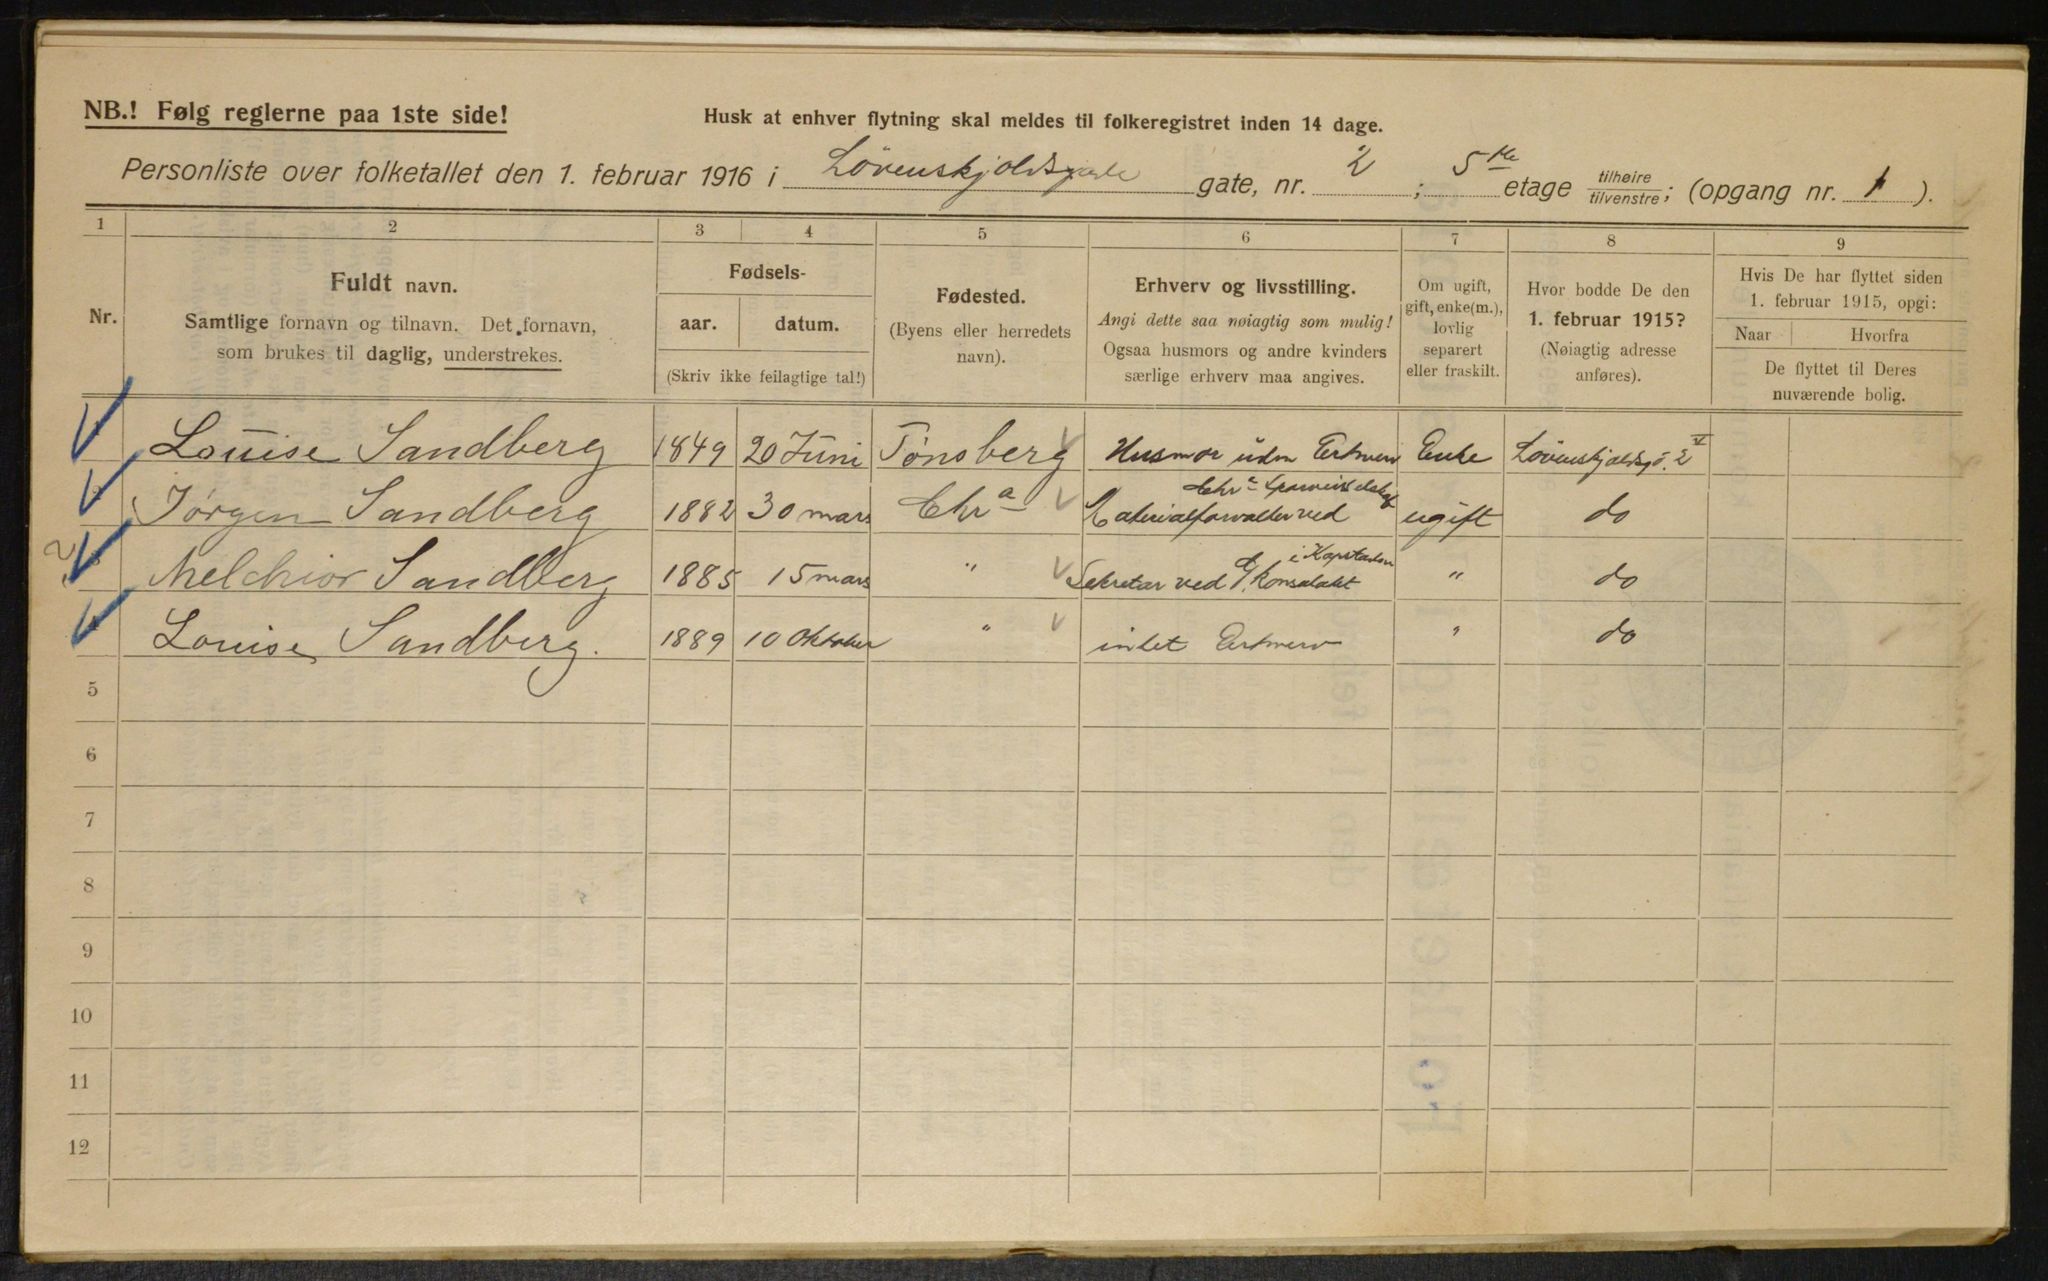 NB.! Følg reglerne paa 1ste side!
Husk at enhver flytning skal meldes til folkeregistret inden 14 dage.
Personliste over folketallet den 1. februar 1916 i Lövenskjoldsgade gate, nr. 2 ; 5te etage tilhøire / tilvenstre ; (opgang nr. 1 ).
1 2 3 4 5 6 7 8 9
Nr.
Fuldt navn.
Samtlige fornavn og tilnavn. Det fornavn,
som brukes til daglig, understrekes.
Fødsels-
aar. datum.
(Skriv ikke feilagtige tal!)
Fødested.
(Byens eller herredets
navn).
Erhverv og livsstilling.
Angi dette saa nøiagtig som mulig!
Ogsaa husmors og andre kvinders
særlige erhverv maa angives.
Om ugift,
gift, enke(m.),
lovlig
separert
eller fraskilt.
Hvor bodde De den
1. februar 1915?
(Nøiagtig adresse
anføres).
Hvis De har flyttet siden
1. februar 1915, opgi:
Naar Hvorfra
De flyttet til Deres
nuværende bolig.
Louise Sandberg 1849 20 Juni Tønsberg Husmor uden Erhverv Enke Lövenskjoldsg. 2 V
Jørgen Sandberg 1882 30 mars Chra Materialforvalter ved Chra Sporveisselskab ugift do
Melchior Sandberg 1885 15 mars " Sekretær ved G. konsulatet i Kapstaden " do
Louise Sandberg. 1889 10 Oktober " intet Erhverv " do
5
6
7
8
9
10
11
12